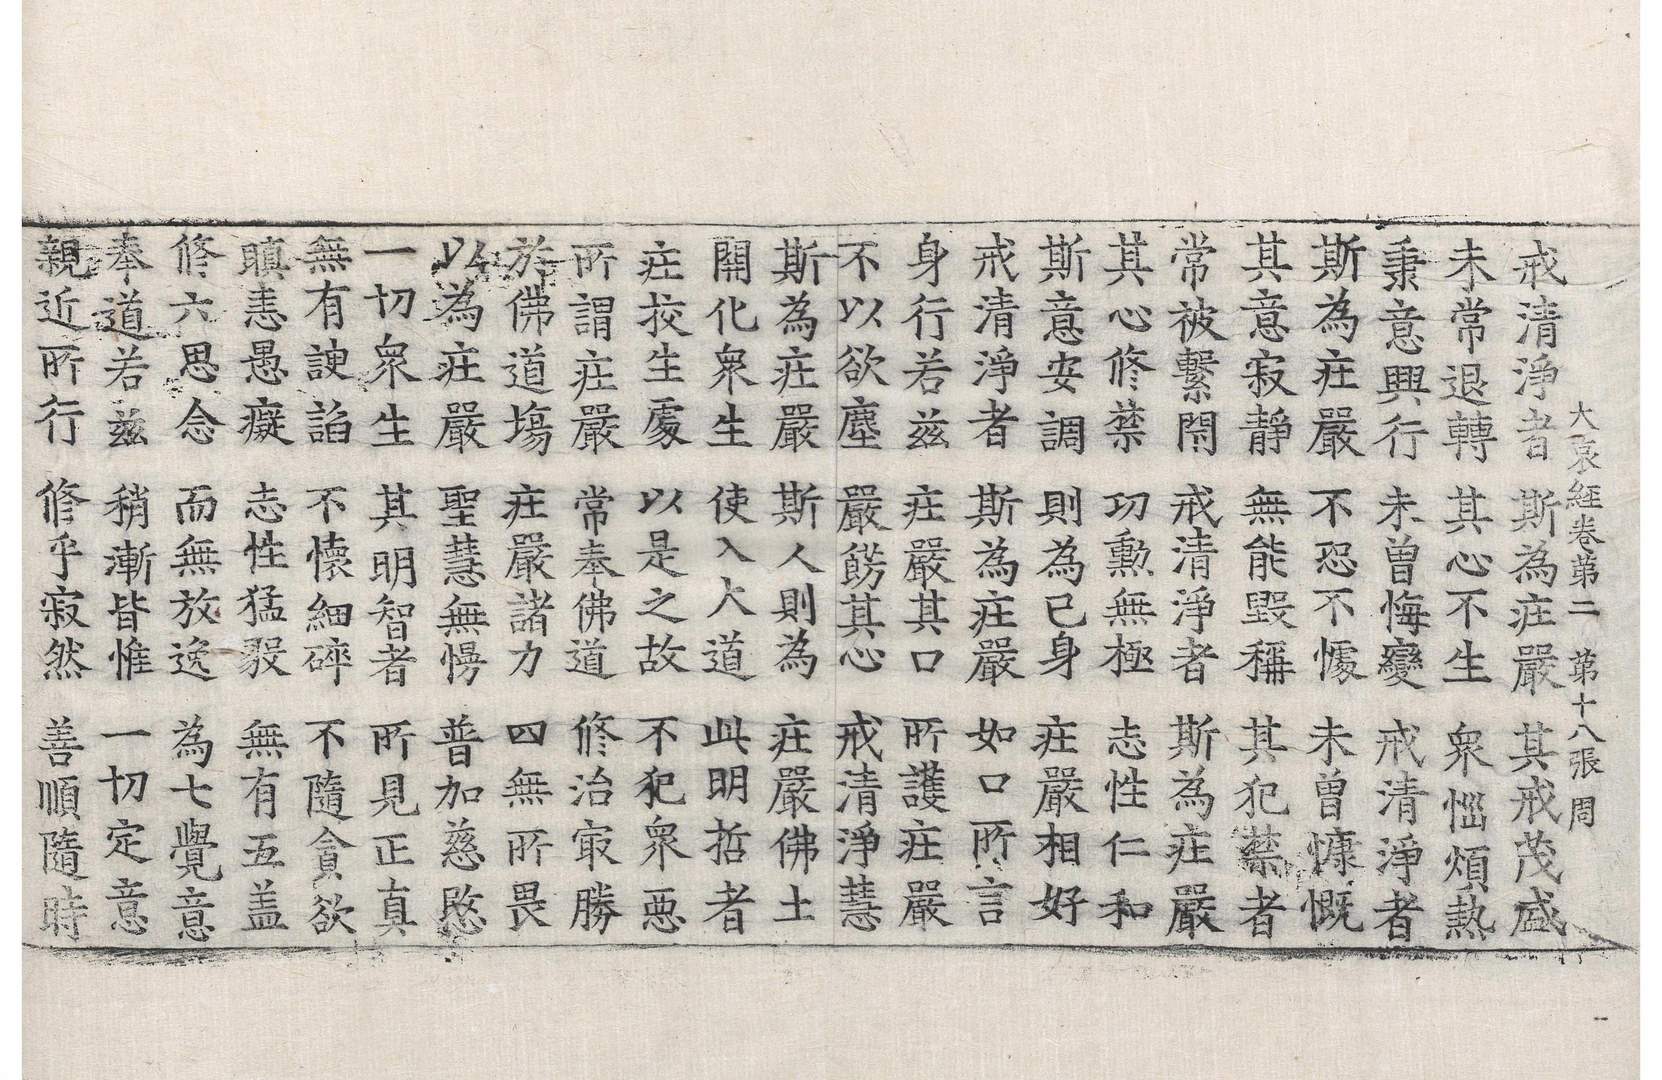 大哀經卷第二　第十八張　周
戒清淨者　斯為庄嚴　其戒茂盛
未常退轉　其心不生　衆惱煩熱
秉意興行　未曾悔變　戒清淨者
斯為庄嚴　不恐不懅　未曾慷慨
其意寂靜　無能毀稱　其犯禁者
常被繫閇　戒清淨者　斯為庄嚴
其心修禁　功勳無極　志性仁和
斯意安調　則為己身　庄嚴相好
戒清淨者　斯為庄嚴　如口所言
身行若茲　庄嚴其口　所護庄嚴
不以欲塵　嚴餝其心　戒清淨慧
斯為庄嚴　斯人則為　庄嚴佛土
開化衆生　使入大道　此明哲者
庄挍生處　以是之故　不犯衆惡
所謂庄嚴　常奉佛道　修治㝡勝
於佛道場　庄嚴諸力　四無所畏
以為庄嚴　聖慧無愣　普加慈愍
一切衆生　其明智者　所見正真
無有諛諂　不懷細碎　不隨貪欲
瞋恚愚癡　志性猛毅　無有五盖
修六思念　而無放逸　為七覺意
奉道若茲　稍漸皆惟　一切定意
親近所行　修乎寂然　善順隨時